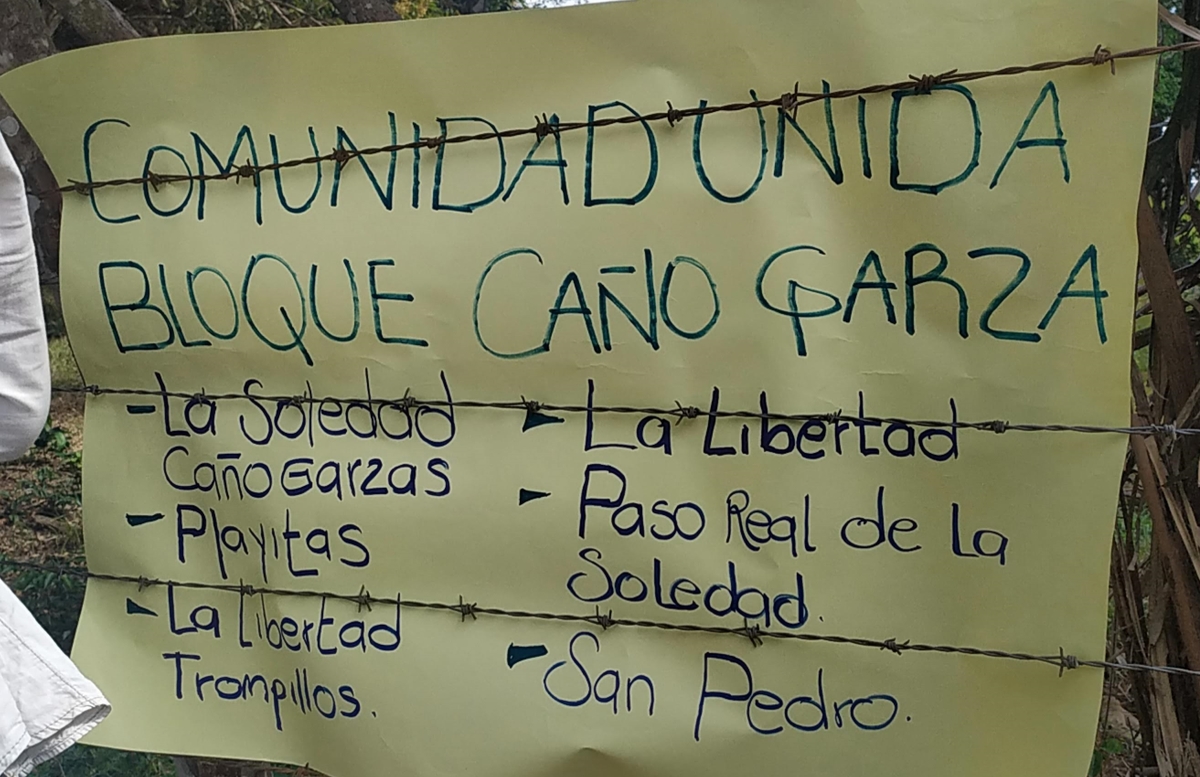 COMUNIDAD UNIDA
BLOQUE CAÑO GARZA
- La Soledad
Caño Garzas
- Playitas
- La Libertad
Trompillos.
- La Libertad
- Paso Real de la
Soledad.
- San Pedro.